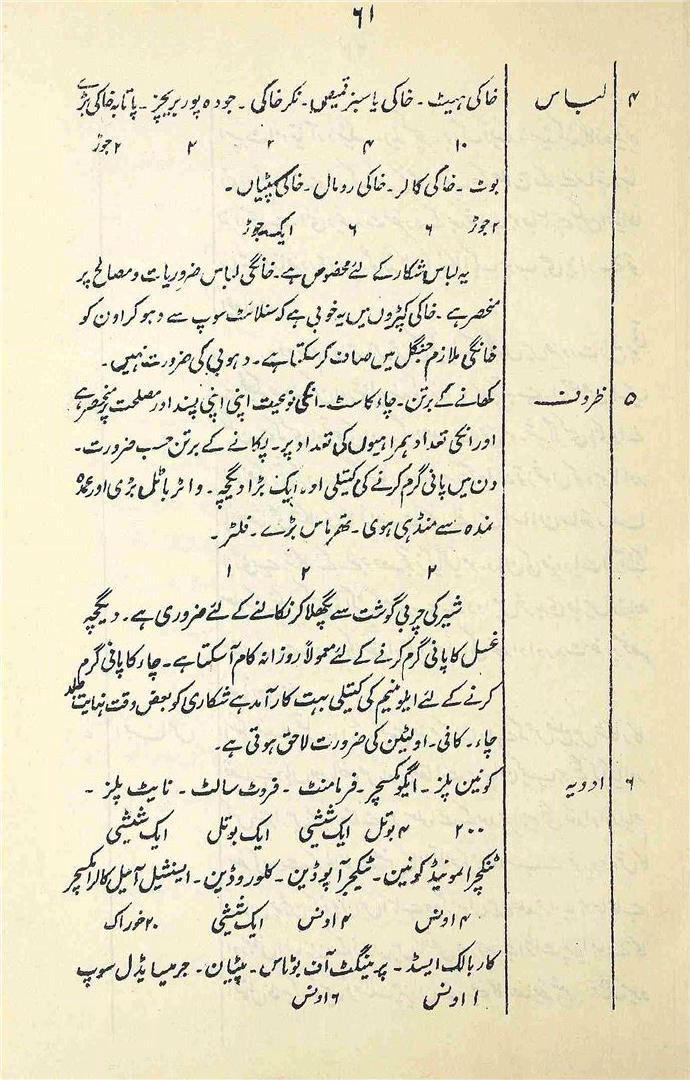 ۶۱
۴ لباس خاکی ہیٹ ۔ خاکی یا سبز قمیص ۔ نکر خاکی ۔ جودہ پور بریچز ۔ پاتابہ خاکی بڑے
۱۰ ۴ ۲ ۲ ۲ جوڑ
بوٹ ۔ خاکی کالر ۔ خاکی رومال ۔ خاکی پٹیاں ۔
۲ جوڑ ۶ ۶ ایک جوڑ
یہ لباس شکار کے لئے مخصوص ہے ۔ خانگی لباس ضروریات و مصالح پر
منحصر ہے ۔ خاکی کپڑوں میں یہ خوبی ہے کہ سنلائٹ سوپ سے دہو کر اون کو
خانگی ملازم جنگل میں صاف کر سکتا ہے ۔ دہوبی کی ضرورت نہیں ۔
۵ ظروف کھانے کے برتن ۔ چاء کا سٹ ۔ انکی نوعیت اپنی اپنی پسند اور مصلحت پر منحصر ہے
اور انکی تعداد ہمراہیوں کی تعداد پر ۔ پکانے کے برتن حسب ضرورت ۔
دن میں پانی گرم کرنے کی کیتلی اور ایک بڑا دیگچہ ۔ واٹر باٹل بڑی اور عمدہ
نمدہ سے منڈہی ہوی ۔ تھرماس بڑے ۔ فلٹر ۔
۲ ۲ ۱
شیر کی چربی گوشت سے پگھلا کر نکالنے کے لئے ضروری ہے ۔ دیگچہ
غسل کا پانی گرم کرنے کے لئے معمولاً روزانہ کام آسکتا ہے ۔ چاء کا پانی گرم
کرنے کے لئے ایلومینیم کی کیتلی بہت کار آمد ہے شکاری کو بعض وقت نہایت جلد
چاء ۔ کافی ۔ اولٹین کی ضرورت لاحق ہوتی ہے ۔
۶ ادویہ کونین پلز ۔ ایگو مکسچر ۔ فرامنٹ ۔ فروٹ سالٹ ۔ نایٹ پلز ۔
۲۰۰ ۴ بوتل ایک شیشی ایک بوتل ایک شیشی
ٹنکچر امونیٹڈ کونین ۔ ٹنکچر آیوڈین ۔ کلوروڈین ۔ ایسنشیل آئیل کالرا مکسچر
۴ اونس ۴ اونس ایک شیشی ۲۰ خوراک
کاربالک ایسڈ ۔ پرمینگنٹ آف پوٹاس ۔ پٹیان ۔ جرمیسایڈل سوپ
۱ اونس ۶ اونس